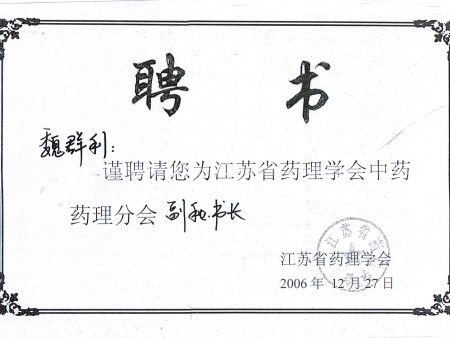 聘 书
魏群利：
谨聘请您为江苏省药理学会中药
药理分会 副秘书长
江苏省药理学会
2006 年 12 月 27 日